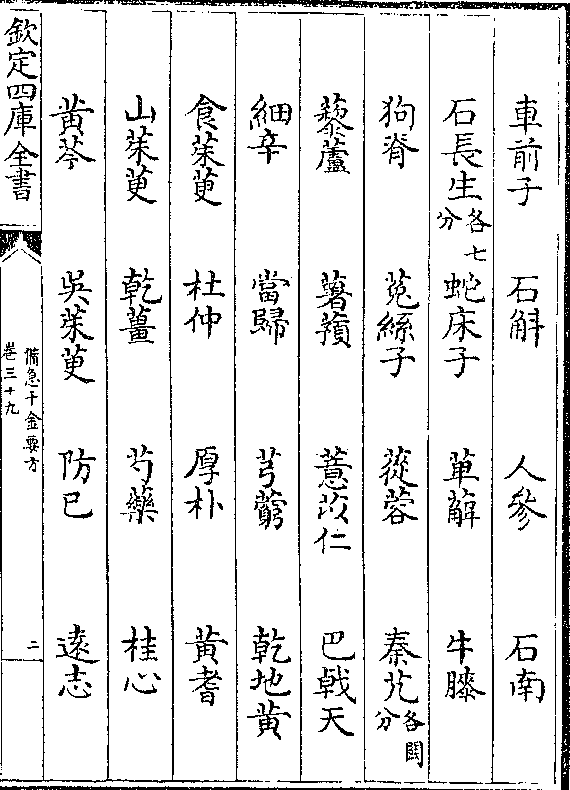 車前子 石斛 人參 石南
石長生各七分 蛇床子 萆薢 牛膝
狗脊 菟絲子 蓯蓉 秦艽各闕分
藜蘆 薯蕷 薏苡仁 巴戟天
細辛 當歸 芎藭 乾地黃
食茱萸 杜仲 厚朴 黃耆
山茱萸 乾薑 芍藥 桂心
黃芩 吳茱萸 防已 遠志
欽定四庫全書
備急千金要方
卷三十九
二